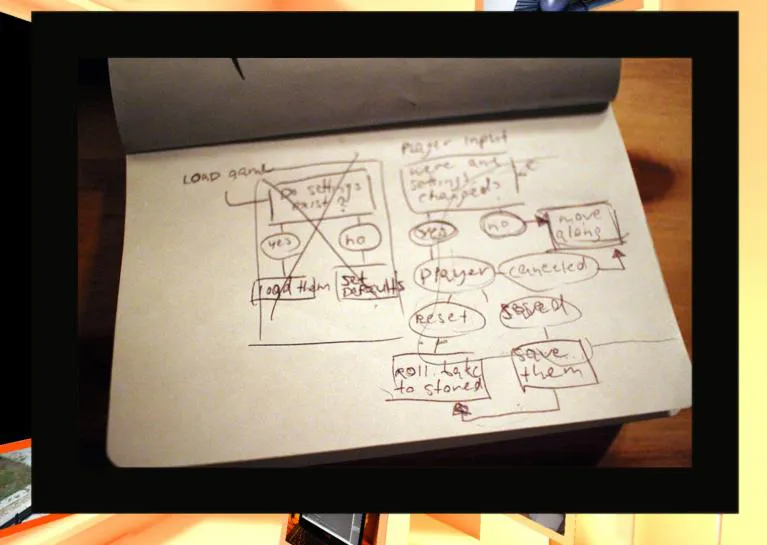 LOAD game
Do settings
exist?
yes
no
load them
set
DeFaults
Player input
were any
settings
changed?
yes
no
move
along
player
canceled
reset
saved
Roll back
to stored
save
them